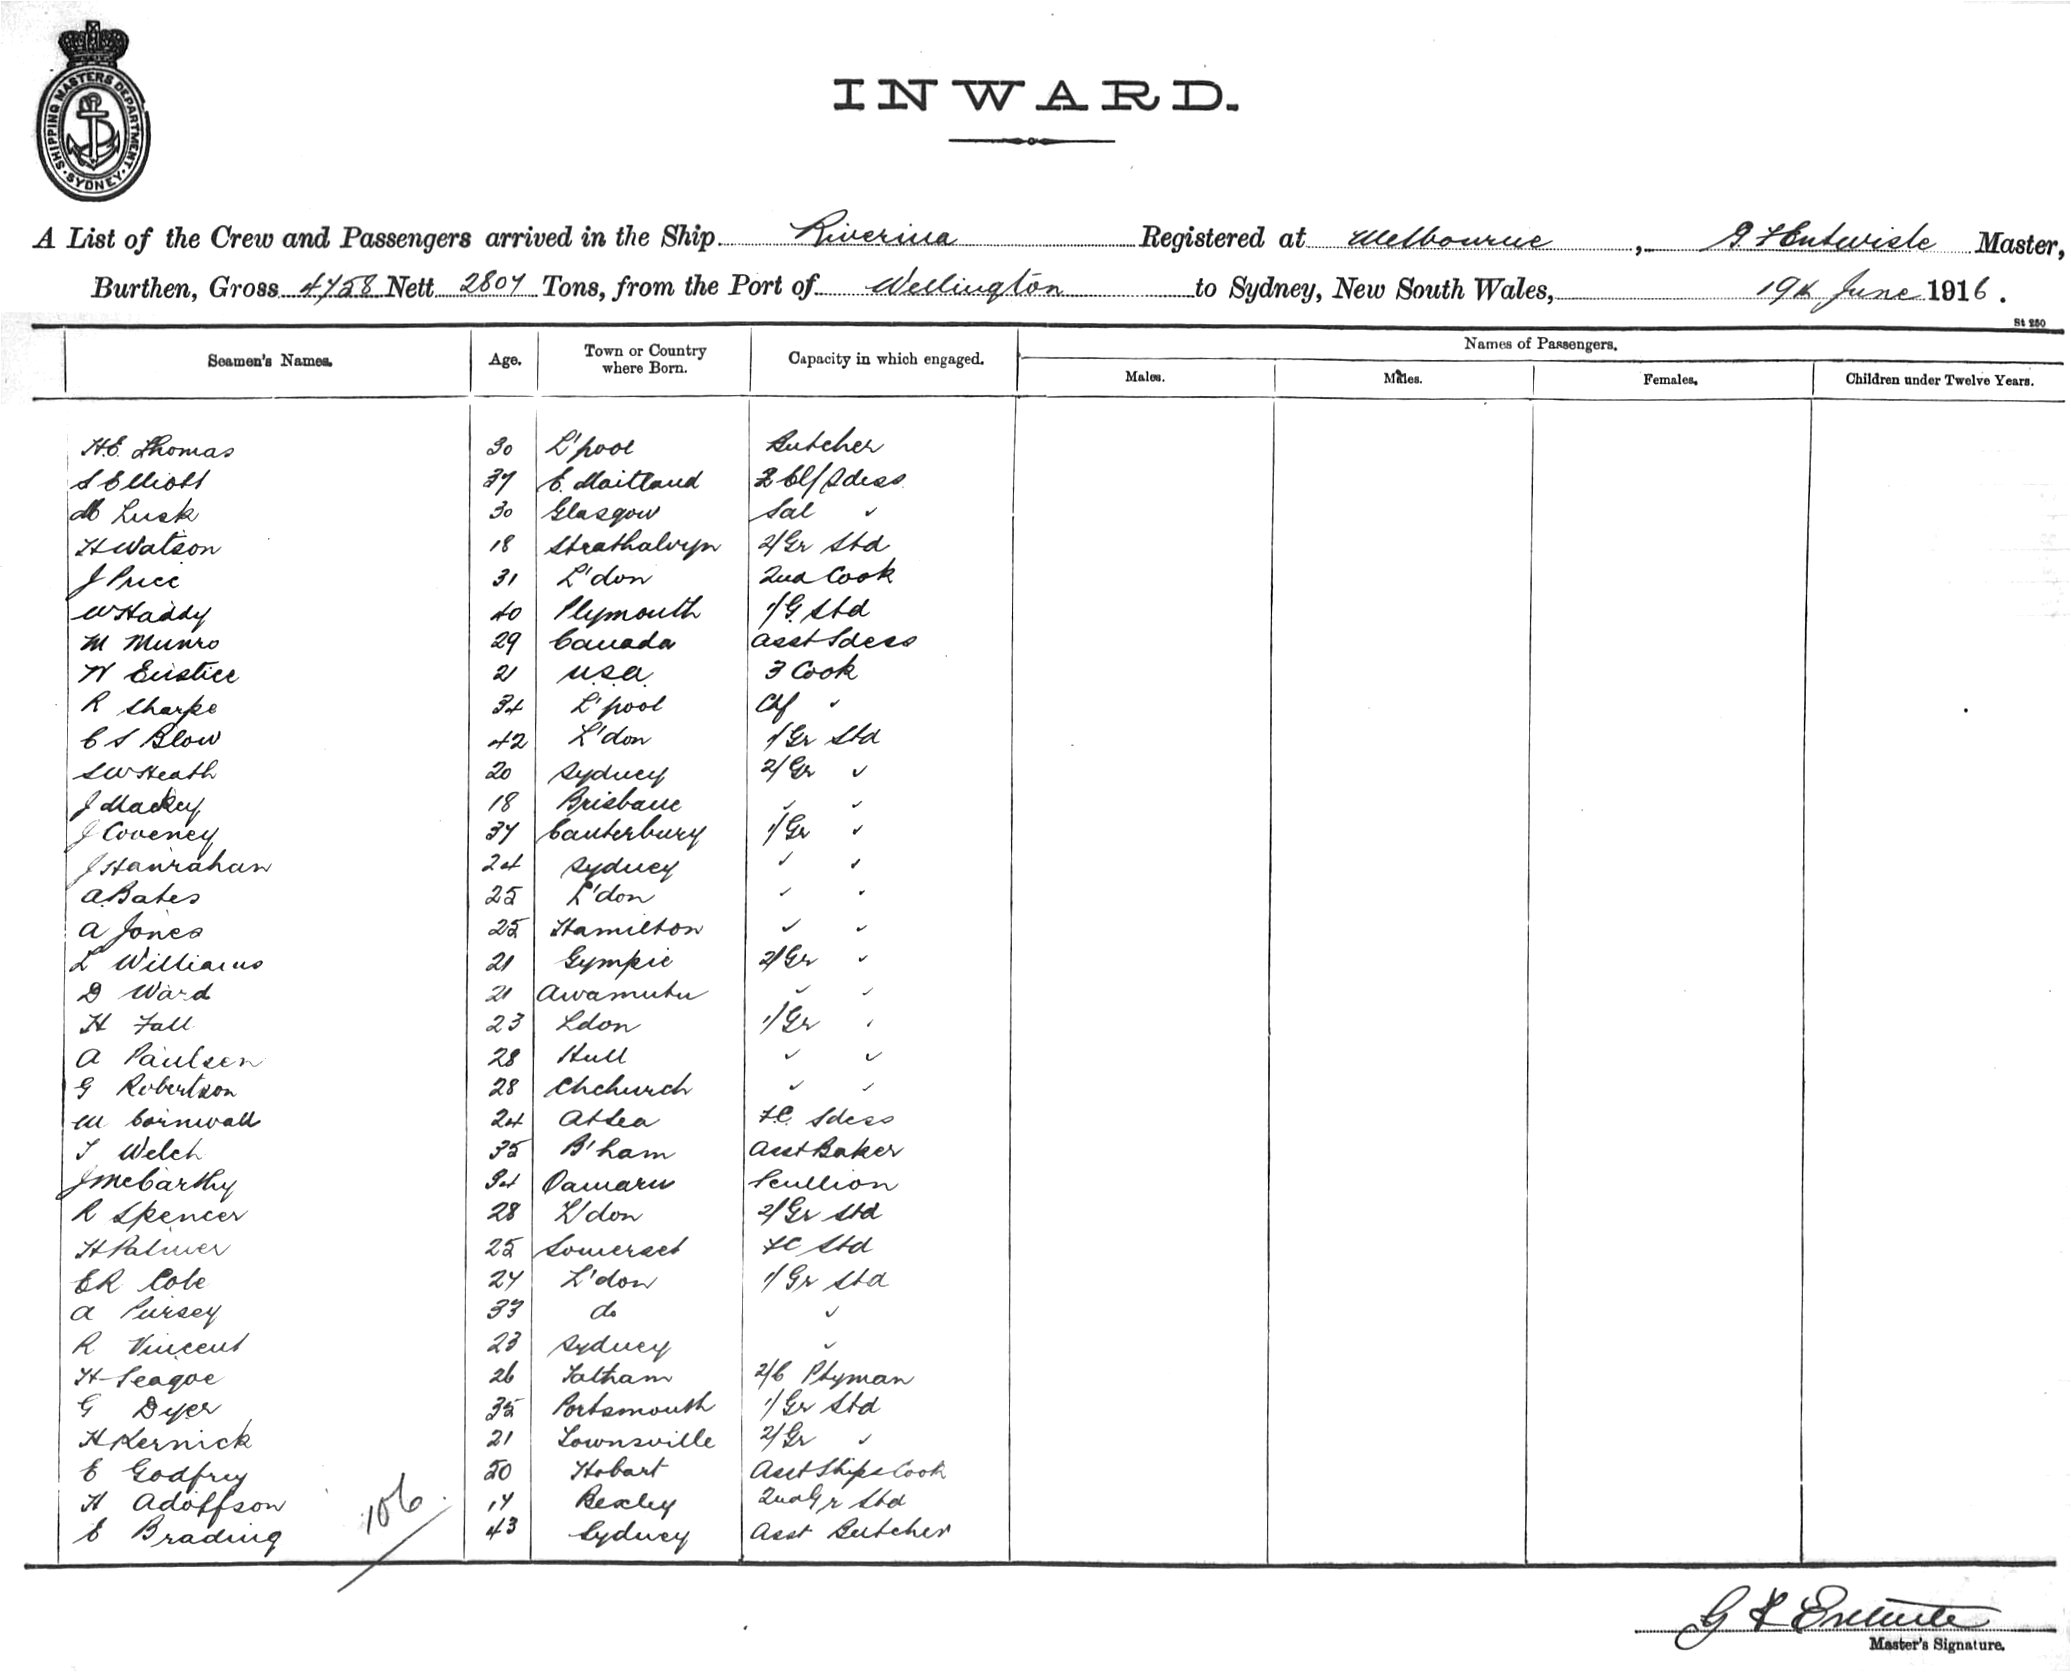 SHIPPING MASTERS DEPARTMENT SYDNEY
INWARD.
A List of the Crew and Passengers arrived in the Ship Riverina Registered at Melbourne, G F Entwisle Master,
Burthen, Gross 4758 Nett 2807 Tons, from the Port of Wellington to Sydney, New South Wales, 19th June 1916.
St 250
Seamen's Names. Age. Town or Country where Born. Capacity in which engaged. Names of Passengers.
Males. Males. Females. Children under Twelve Years.
H.E. Thomas 30 L'pool Butcher
S Elliott 37 E. Maitland 2 Cl/Sdess
M Lusk 30 Glasgow Sal "
H Watson 18 Strathalvyn 2/Gr Std
J Price 31 L'don 2nd Cook
W Haddy 40 Plymouth 1/G. Std
M Munro 29 Canada Asst Sdess
W Eustice 21 U.S.A. 3 Cook
R Sharpe 34 L'pool Chf "
C S Blow 42 L'don 1/Gr Std
S W Heath 20 Sydney 2/Gr "
J Mackey 18 Brisbane " "
J Coveney 37 Canterbury 1/Gr "
J Hanrahan 24 Sydney " "
A. Bates 25 L'don " "
A Jones 25 Hamilton " "
L Williams 21 Gympie 2/Gr "
D Ward 21 Awamutu " "
H Fall 23 Ldon 1/Gr "
A Paulsen 28 Hull " "
G Robertson 28 Chchurch " "
M Cornwall 24 At Sea F.C. Sdess
T Welch 35 B'ham Asst Baker
J McCarthy 34 Oamaru Scullion
R Spencer 28 L'don 2/Gr Std
H Palmer 25 Somerset FC Std
E R Cole 27 L'don 1/Gr Std
A Pursey 33 do "
R Vincent 23 Sydney "
H Seagoe 26 Tatham 2/C Ptyman
G Dyer 35 Portsmouth 1/Gr Std
H Kernick 21 Townsville 2/Gr "
E Godfrey 50 Hobart Asst Ships Cook
H Adolfson 17 Bexley 2nd Gr Std
E Brading 43 Sydney Asst Butcher
106
G F Entwisle
Master's Signature.